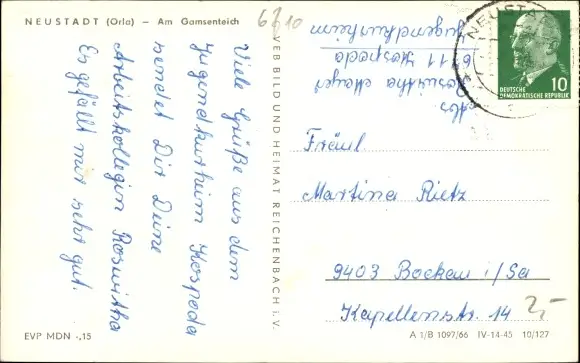 NEUSTADT (Orla) – Am Gamsenteich
6710
Viele Grüße aus dem
Jugendkurheim Kospoda
sendet Dir Deine
Arbeitskollegin Roswitha
Es gefällt mir sehr gut.
VEB BILD UND HEIMAT REICHENBACH i. V.
Abs
Roswitha Meyer
6711 Kospoda
Jugendkurheim
NEUSTA
DEUTSCHE
DEMOKRATISCHE REPUBLIK
10
Fräul.
Martina Rietz
9403 Bockau i/Sa
Kapellenstr. 14
2,-
EVP MDN -,15
A 1/B 1097/66 IV-14-45 10/127